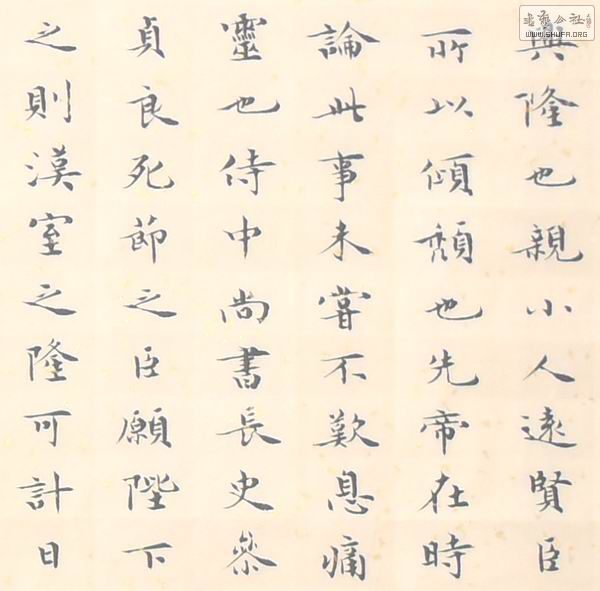 興隆也親小人遠賢臣
所以傾頹也先帝在時
論此事未嘗不歎息痛
靈也侍中尚書長史參
貞良死節之臣願陛下
之則漢室之隆可計日
公社
WWW.SHUFA.ORG